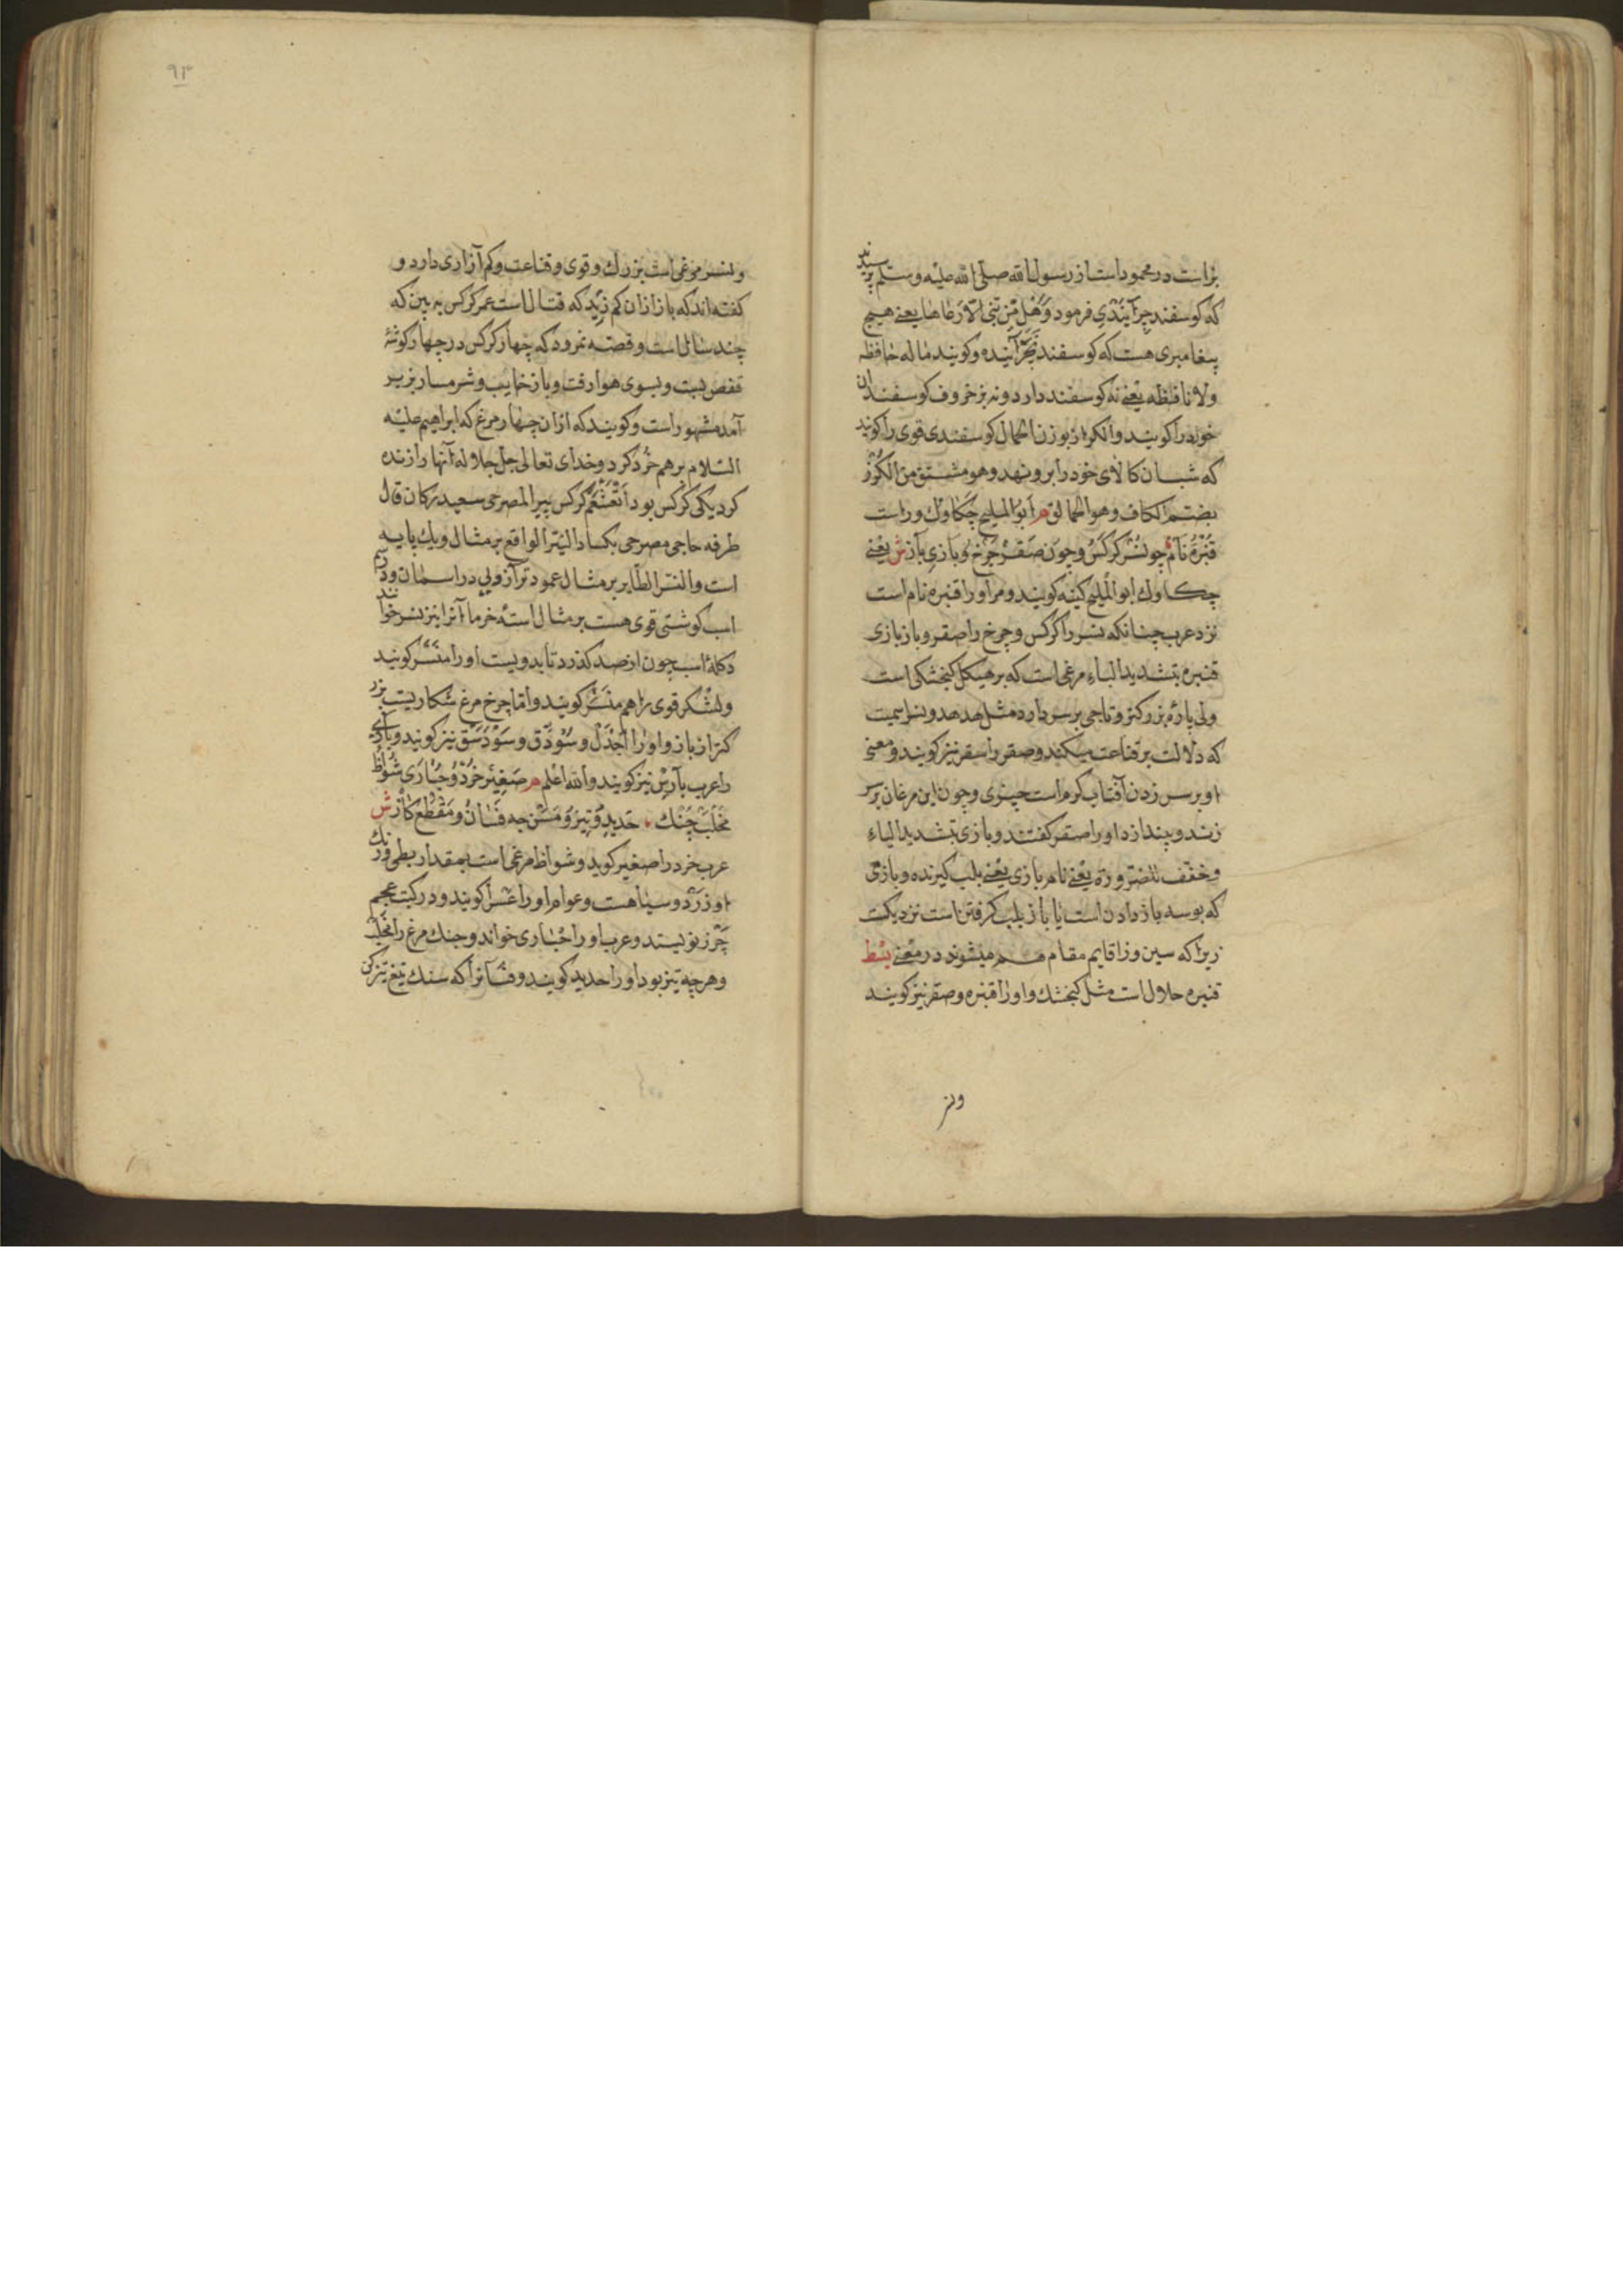 بزاست در محمود است از رسول الله صلی الله علیه و سلم پرسیدند
که کوسفند چرانیدی فرمود وَهَل مِن نَبیٍّ الا رعاها یعنی هیچ
پیغامبری هست که کوسفند نچرانیده و کویند ماله حافظه
ولا نافظه یعنی نه کوسفند دارد و نه بز خروف کوسفندان
خورد را کویند والکراز بوزن الحمال کوسفندی قوی را کویند
که شبان کالای خود را برو نهد و هو مشتق من الکُرز
بضم الکاف و هو الجوالق م ابو الملیح چکاوک و راست
قُبَّرَه نام چو نسر کرکس و چون صَقر چرخ و بازی باز ش یعنی
چکاوک ابو الملیح کینه کویند و مر او را قنبره نام است
نزد عرب چنانکه نسر را کرکس و چرخ را صقر و باز بازی
قنبره بتشدید الباء مرغی است که بر هیکل کنجشکی است
ولی پاره بزرکتر و تاجی بر سر دارد مثل هدهد و
که دلالت بر قناعت میکند و صقر را سقر نیز کویند و معنی
او بر سر زدن آفتاب کرم است چیزی و چون این مرغان بر سر
زند و بیندازد او را صقر کفتند و بازی بتشدید الیاء
و خفف للضروره یعنی نام بازی یعنی بلب کیرنده و بازی
که بوسه باز دادن است یا باز بلب کرفتن است نزدیکست
زیرا که سین و زا قایم مقام هم میشوند در معنی بسط
قنبره حلال است مثل کنجشک و او را قنبره و صقر نیز کویند
ونسر
۹۳
ونسر مرغی است بزرک و قوی و قناعت و کم آزاری دارد و
کفته اند که باز از ان کم زید که قتال است عمر کرکس به بین که
چند سال است و قصه نمرود که چهار کرکس در چهار کوشهٔ
قفص بست و بسوی هوا رفت و باز خایب و شرمسار بزیر
آمد مشهور است و کویند که از ان چهار مرغ که ابراهیم علیه
السلام برهم خُرد کرد و خدای تعالی جل جلاله آنها را زنده
کرد یکی کرکس بود کرکس پیر المصرحی سعید رکان قال
طرفه حاجی مصرحی النسر الواقع بر مثال و یک پایه
است والنسر الطایر بر مثال عمود ترازویی در اسمان و در سم
اسب کوشتی قوی هست بر مثال استهٔ خرما آنرا نیز نسر خوانند
و کلهٔ اسب چون از صد کذرد تا بدویست او را مَنسر کویند
و لشکر قوی را هم منسر کویند و اما چرخ مرغ شکاریست بزر
کتر از باز و او را اجدل و سُوذق و سَوذَنیق نیز کویند و بازی
را عرب بازی نیز کویند والله اعلم م صغیر خُرد و حباری شواظ
مخلب چنک حدید تیز و مسن چه فسان و مقطع کاز ش
عرب خرد را صغیر کوید و شواظ مرغی است بمقدار بطی و رنک
او زرد و سیاهست و عوام او را کویند و در کتب عجم
چرز نویسند و عرب او را حباری خواند و چنک مرغ را مخلب
و هرچه تیز بود او را حدید کویند و فسانرا که سنک تیغ تیز کن